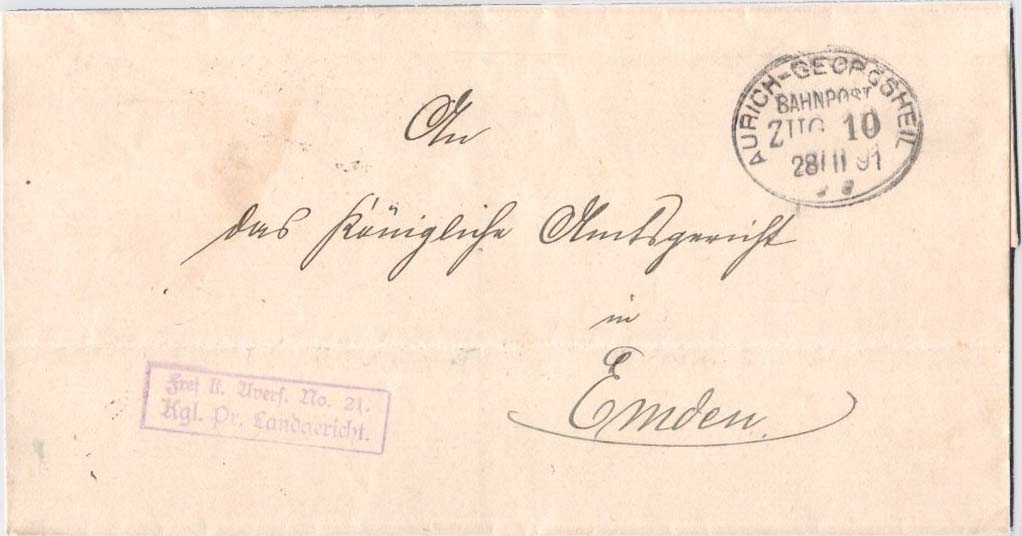 AURICH-GEORGSHEIL
BAHNPOST
ZUG 10
28/11 91
An
das Königliche Amtsgericht
in
Emden.
Frei lt. Avers. No. 21.
Kgl. Pr. Landgericht.